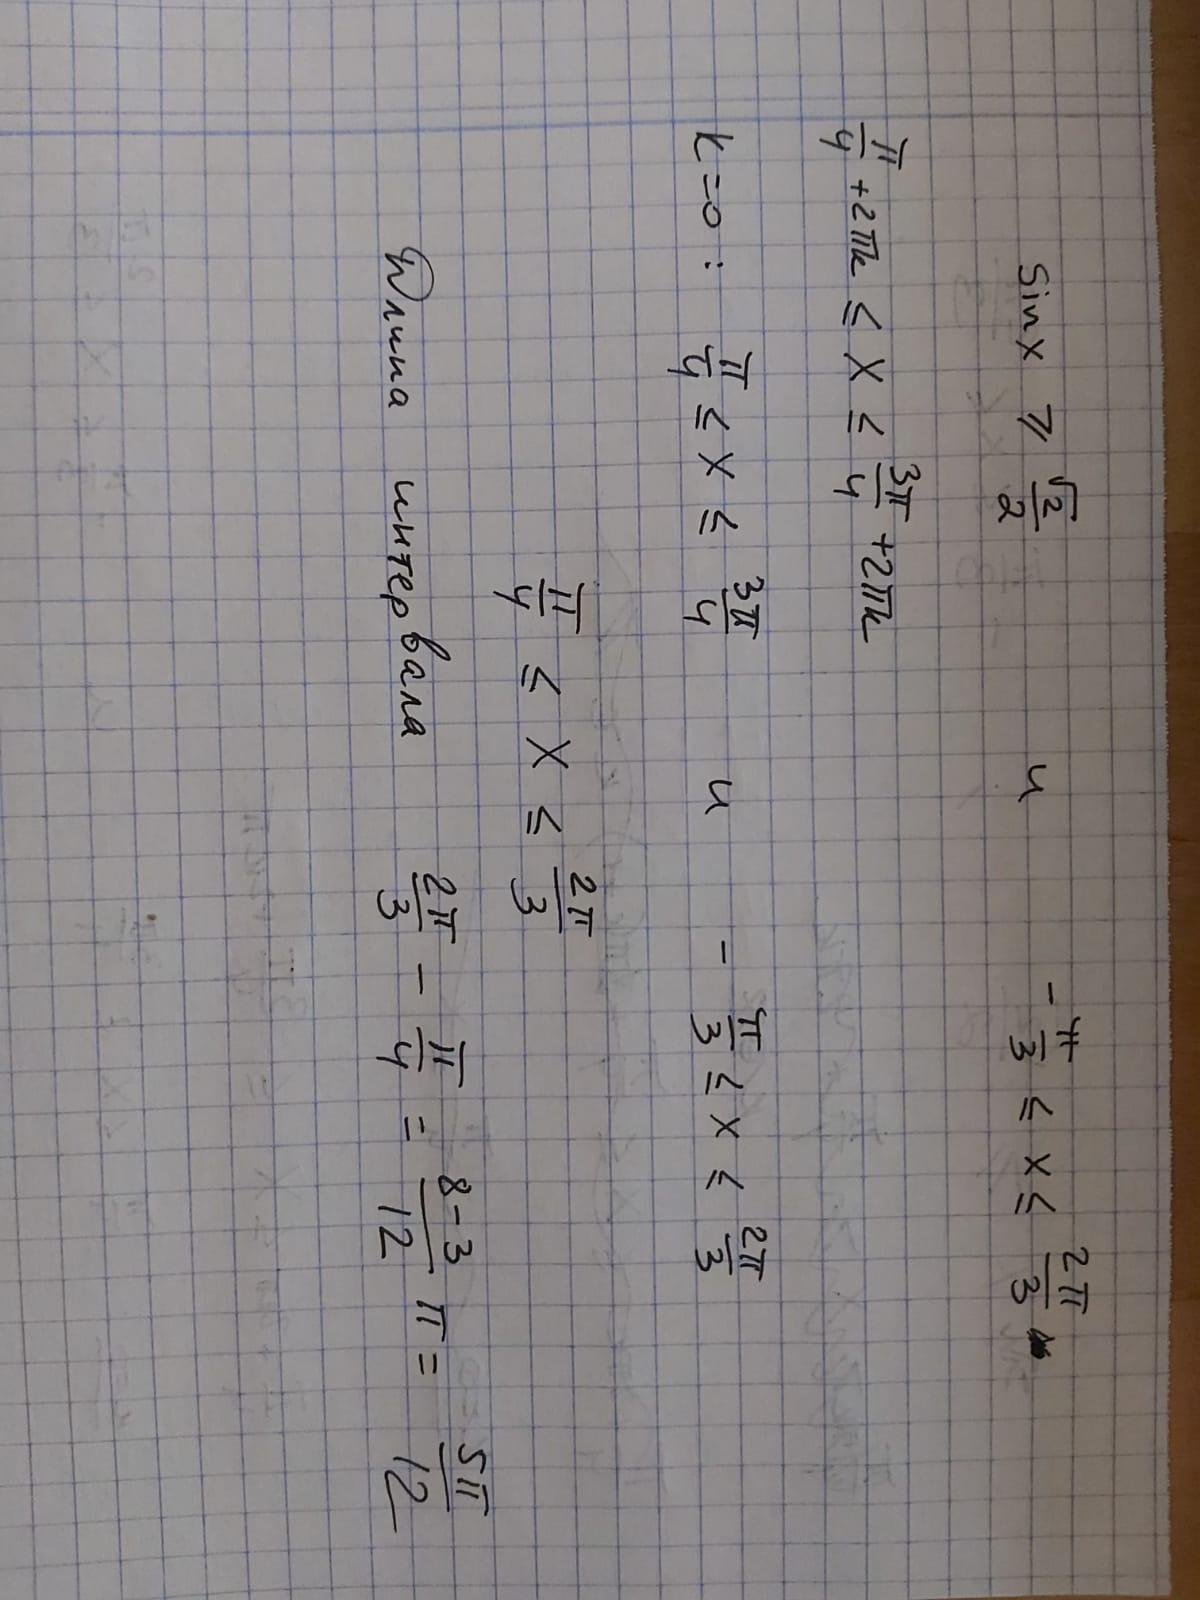 sin x ≥ √2/2 и -π/3 ≤ x ≤ 2π/3
π/4 + 2πk ≤ x ≤ 3π/4 + 2πk
k=0: π/4 ≤ x ≤ 3π/4 и -π/3 ≤ x ≤ 2π/3
π/4 ≤ x ≤ 2π/3
Длина интервала 2π/3 - π/4 = 8-3/12 π = 5π/12